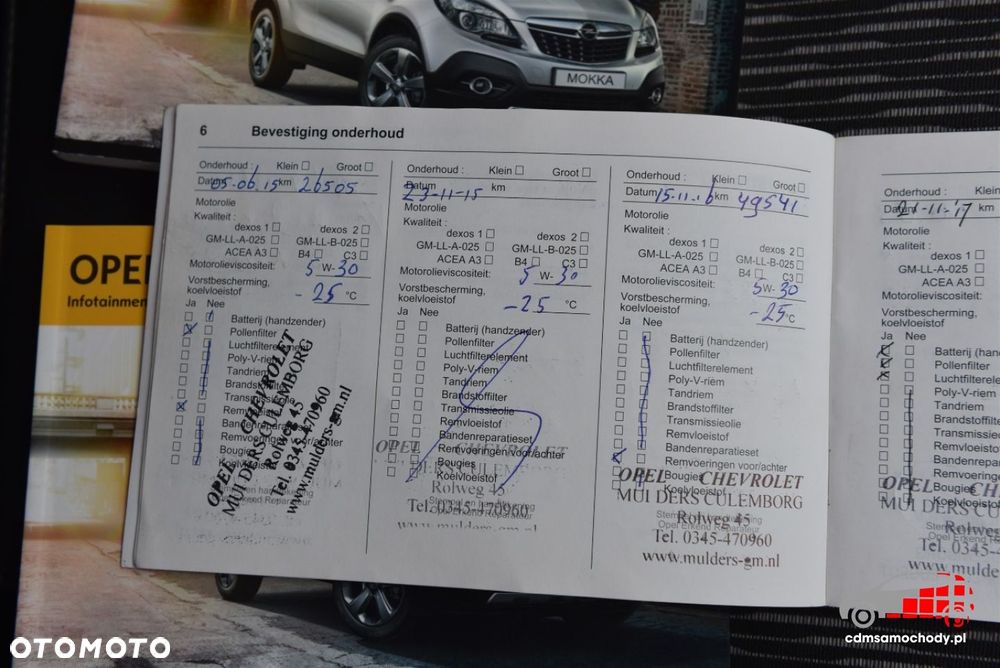 MOKKA
OPEL
Infotainmen
6 Bevestiging onderhoud
Onderhoud : Klein Groot
Datum 05-06 15 km 26505
Motorolie
Kwaliteit :
dexos 1 dexos 2
GM-LL-A-025 GM-LL-B-025
ACEA A3 B4 C3
Motorolieviscositeit: 5 W- 30
Vorstbescherming,
koelvloeistof -25 °C
Ja Nee
Batterij (handzender)
Pollenfilter
Luchtfilterelement
Poly-V-riem
Tandriem
Brandstoffilter
Transmissieolie
Remvloeistof
Bandenreparatieset
Remvoeringen voor/achter
Bougies
Koelvloeistof
OPEL CHEVROLET
MULDERS CULEMBORG
Rolweg 45
Tel. 0345-470960
www.mulders-gm.nl
Onderhoud : Klein Groot
Datum 23-11-15 km
Motorolie
Kwaliteit :
dexos 1 dexos 2
GM-LL-A-025 GM-LL-B-025
ACEA A3 B4 C3
Motorolieviscositeit: 5 W- 30
Vorstbescherming,
koelvloeistof -25 °C
Ja Nee
Batterij (handzender)
Pollenfilter
Luchtfilterelement
Poly-V-riem
Tandriem
Brandstoffilter
Transmissieolie
Remvloeistof
Bandenreparatieset
Remvoeringen voor/achter
Bougies
Koelvloeistof
OPEL CHEVROLET
MULDERS CULEMBORG
Rolweg 45
Tel. 0345-470960
www.mulders-gm.nl
Onderhoud : Klein Groot
Datum 15-11-16 km 49541
Motorolie
Kwaliteit :
dexos 1 dexos 2
GM-LL-A-025 GM-LL-B-025
ACEA A3 B4 C3
Motorolieviscositeit: 5 W- 30
Vorstbescherming,
koelvloeistof -25 °C
Ja Nee
Batterij (handzender)
Pollenfilter
Luchtfilterelement
Poly-V-riem
Tandriem
Brandstoffilter
Transmissieolie
Remvloeistof
Bandenreparatieset
Remvoeringen voor/achter
Bougies
Koelvloeistof
OPEL CHEVROLET
MULDERS CULEMBORG
Rolweg 45
Opel Erkend Reparateur
Tel. 0345-470960
www.mulders-gm.nl
Onderhoud : Klein
Datum 21-11-'17 km
Motorolie
Kwaliteit :
dexos 1
GM-LL-A-025
ACEA A3
Motorolieviscositeit:
Vorstbescherming,
koelvloeistof
Ja Nee
Batterij (hand
Pollenfilter
Luchtfilterelem
Poly-V-riem
Tandriem
Brandstoffilter
Transmissie
Remvloeistof
Bandenrepara
Remvoeringen
Bougies
Koelvloeistof
OPEL CH
MULDERS CU
Rolweg
Tel. 0345-4
www.mulde
OTOMOTO
cdmsamochody.pl